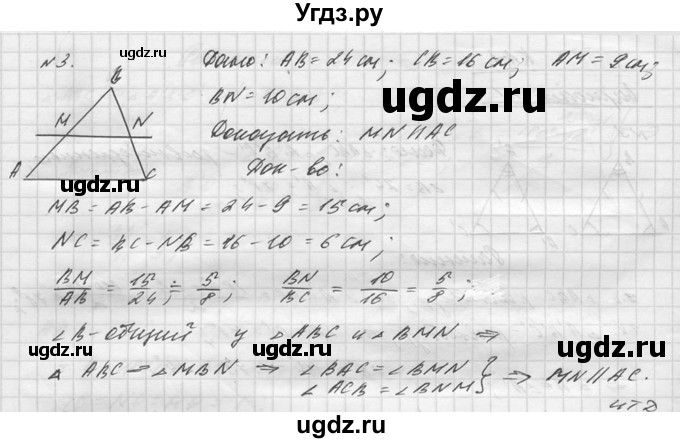 Угдз.ру
№3.
Дано: AB = 24 см; CB = 16 см; AM = 9 см;
BN = 10 см;
Доказать: MN || AC
Док-во:
B
M N
A C
MB = AB - AM = 24 - 9 = 15 см;
NC = BC - NB = 16 - 10 = 6 см;
BM/AB = 15/24 = 5/8; BN/BC = 10/16 = 5/8;
∠B - общий у △ABC и △BMN ⇒
△ABC ~ △MBN ⇒ ∠BAC = ∠BMN
∠ACB = ∠BNM } ⇒ MN || AC.
чтд
ugdz.ru
ugdz.ru
ugdz.ru
ugdz.ru
ugdz.ru
ugdz.ru
ugdz.ru
ugdz.ru
ugdz.ru